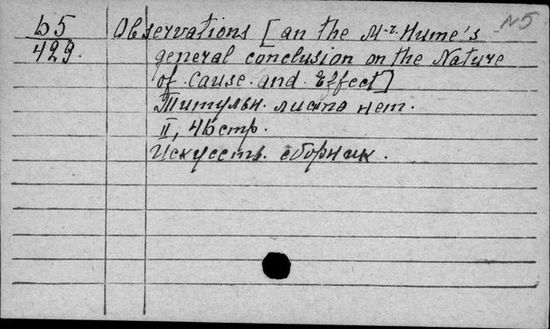 Б5
429.
Observations [an the Mr. Hume's
N5
general conclusion on the Nature
of Cause and Effect]
Титульн. листа нет.
II, 46 стр.
Искусств. сборник.